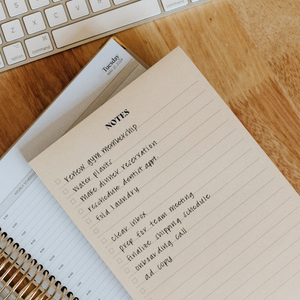 Tuesday
NOTES
review gym membership
water plants
make dinner reservation
reschedule dentist appt.
fold laundry
clear inbox
prep for team meeting
finalize shipping schedule
onboarding call
ad copy